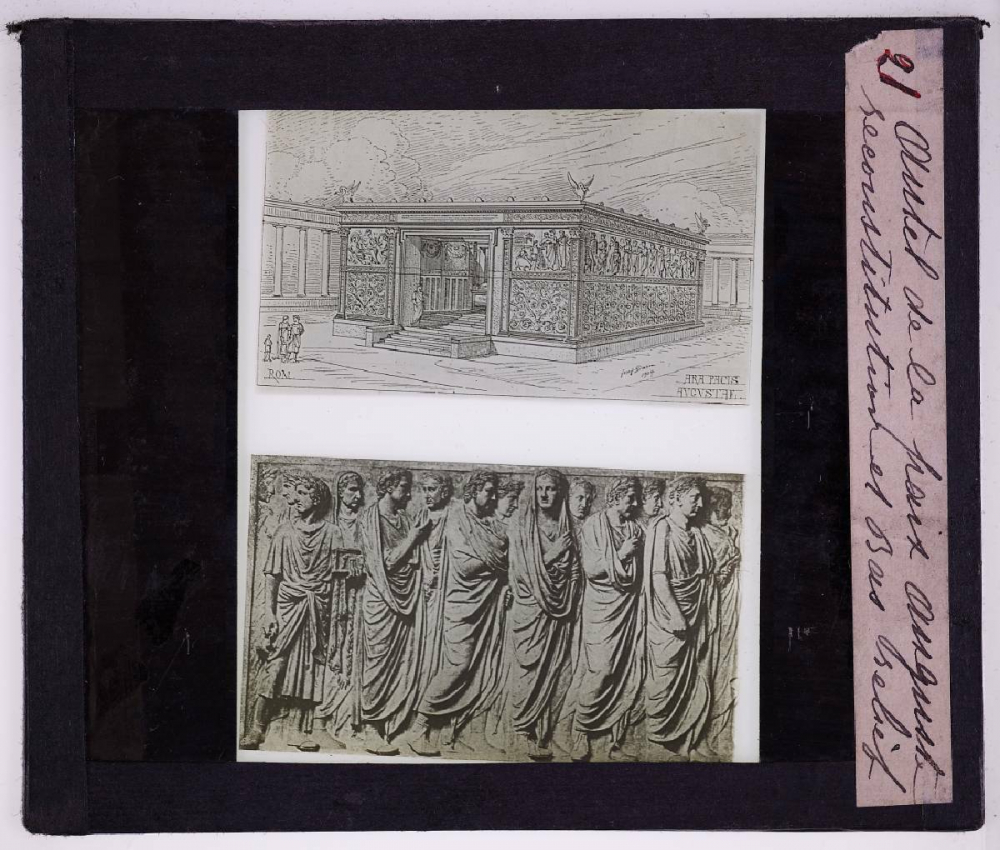 21 Autel de la paix Auguste
reconstitution et Bas relief
ROM
ARA PACIS
AVGVSTAE